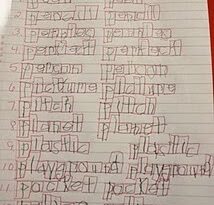 2. pencil pencil
3.
4. perfect perfect
5. person person
6. picture picture
7. pitch pitch
8. planet planet
9. plastic plastic
10. playground playground
11. pocket pocket